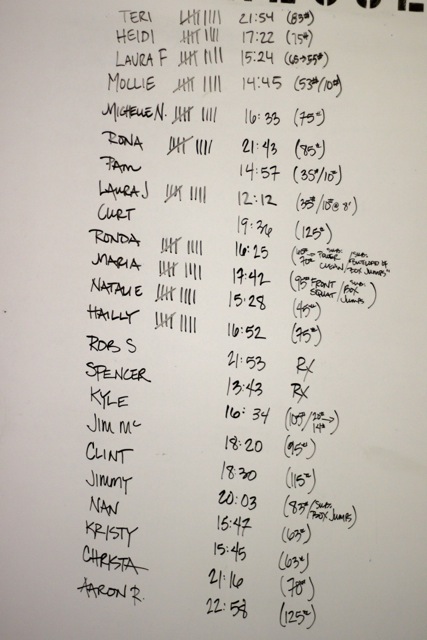 TERI 卌 |||| 21:54 (83#)
HEIDI 卌 |||| 17:22 (75#)
LAURA F 卌 |||| 15:24 (65→55#)
MOLLIE 卌 |||| 14:45 (53#/10#)
MICHELLE N. 卌 |||| 16:33 (75#)
RONA 卌 |||| 21:43 (85#)
PAM 14:57 (35#/10#)
LAURA J 卌 |||| 12:12 (35#/10#@ 8')
CURT 19:36 (125#)
RONDA 卌 |||| 16:25 (65#→70# SUB: POWER CLEAN/ BOX JUMPS)
MARIA 卌 |||| 17:42 (95# FRONT SQUAT/ SUB: BOX JUMPS)
NATALIE 卌 |||| 15:28 (45#)
HAILLY 卌 |||| 16:52 (75#)
ROB S 21:53 RX
SPENCER 13:43 RX
KYLE 16:34 (105#/20#→14#)
JIM MC 18:20 (95#)
CLINT 18:30 (115#)
JIMMY 20:03 (83#/SUB: BOX JUMPS)
NAN 15:47 (63#)
KRISTY 15:45 (63#)
CHRISTA 21:16 (78#)
AARON R. 22:58 (125#)